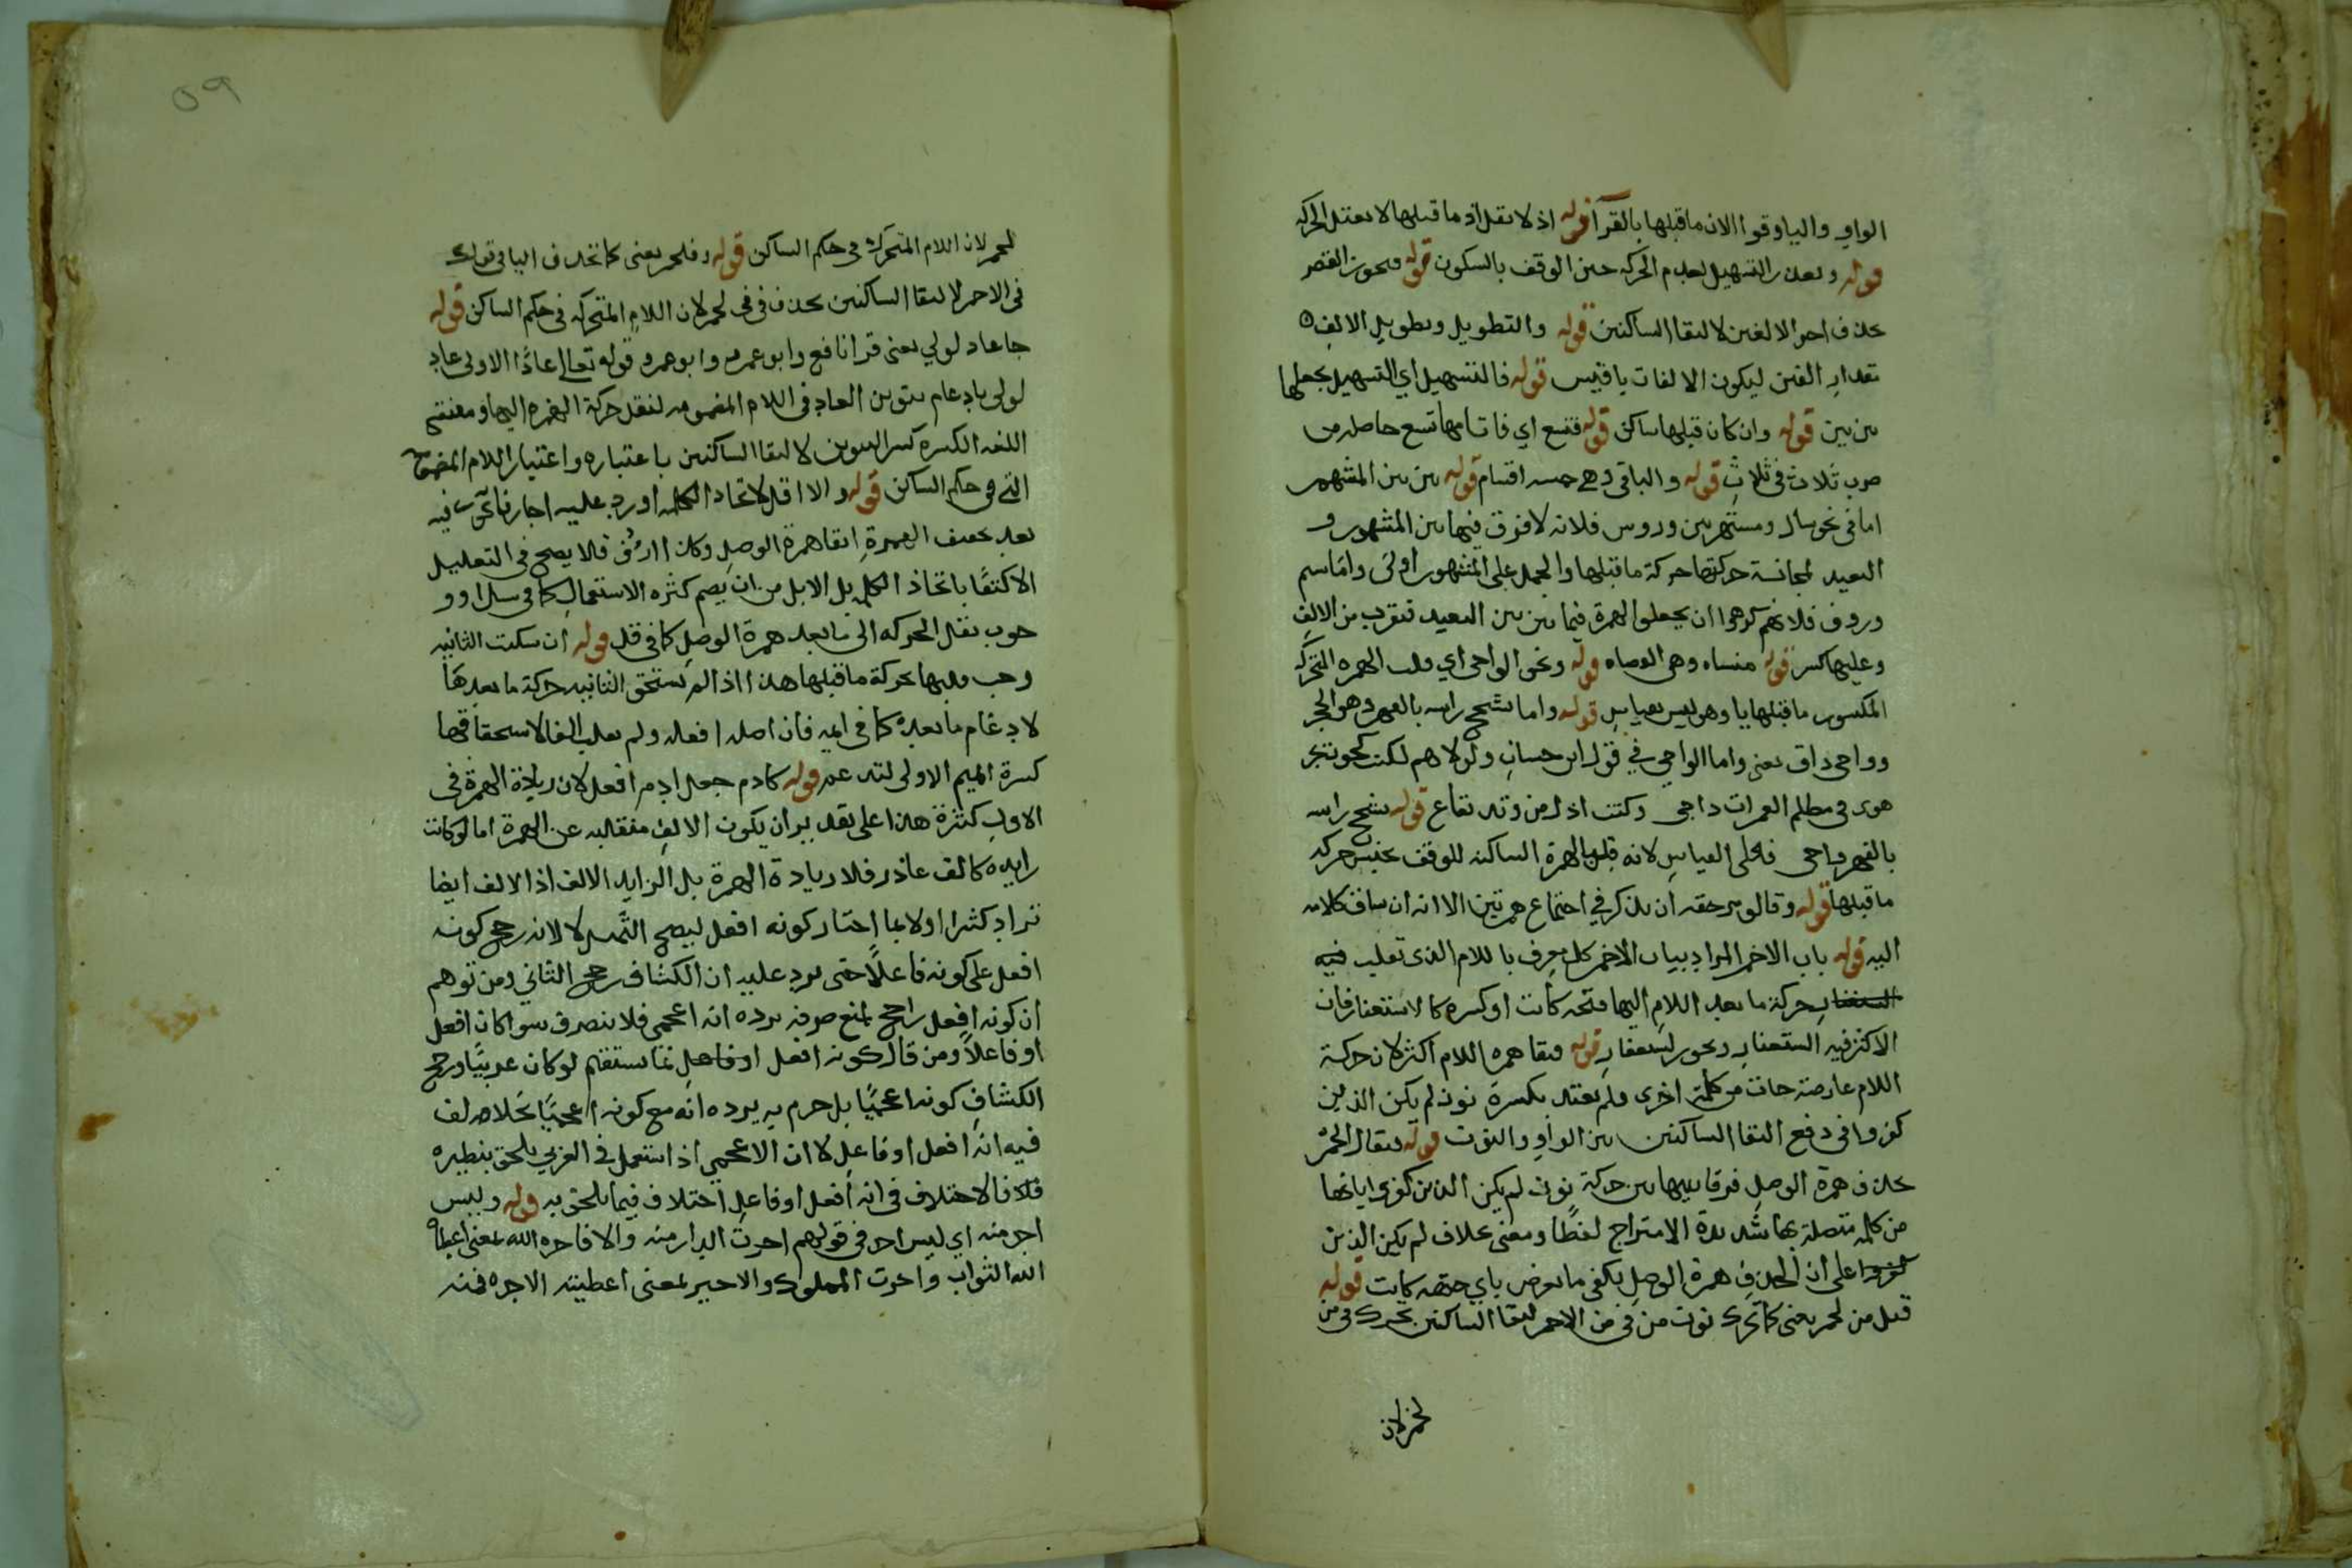 الواو والياوقوا الان ماقبلها بالقرآ قوله اذ لا نقل اذ ما قبلها لا يعتل الحركه
قوله وتعذر التسهيل لعدم الحركه حين الوقف بالسكون قوله ويحوز القصر
بحذف احد الالفين لالتقا الساكنين قوله والتطويل وتطويل الالف
بقدار الفين ليكون الالفات باقيين قوله فالتسهيل اي التسهيل يجعلها
بين بين قوله وان كان قبلها ساكن قوله فتسع اي فاتسامها تسع حاصله من
ضرب ثلاث في ثلاث قوله والباقي وهي خمسه اقسام قوله بين بين المشهور
اما في نحو سال ومستهزين وروس فلانه لا فرق فيها بين المشهور و
البعيد لمجانسة حركتها حركة ماقبلها والحمل على المشهور اولى واماسم
وروف فلانهم كرهوا ان يجعلوا الهمزة فيها بين بين البعيد فتقرب من الالف
وعليها كسر قوله منساه وهي العصاه قوله ونحو الواجي اي قلب الهمزه المتحركه
المكسور ماقبلها يا وهو ليس بقياس قوله واما يشجج راسه بالفهر وهو الحجر
وواجي داق يعني واما الواجي في قول ابن حسان ولولاهم لكنت كحوت بحر
هوى في مظلم الغمرات داجي وكنت اذل من وتد بقاع قوله يشجج راسه
بالفهر واجي فعلى القياس لانه قلب الهمزة الساكنه للوقف بجنيس حركه
ماقبلها قوله وقالوا حقه ان يذكر في اجتماع همزتين الا انه ان ساق كلامه
اليه قوله باب الاحمر المراد ببيان الاحمر كل معرف باللام الذي نقلت فيه
حركة ما بعد اللام اليها فتحه كانت او كسره كالاستغفار فان
الاكثر فيه الستغفار ويحوز لستغفار قوله فبقا همزه اللام اكثر لان حركة
اللام عارضة جات من كلمة اخرى ولم يعتد بكسرة نون لم يكن الذين
كفروا في دفع التقا الساكنين بين الواو والنون قوله فيقال الحمر
بحذف همزة الوصل فرقا بينها بين حركة نون لم يكن الذين كفروا باتها
من كلمه متصلة بها شديدة الامتزاج لفظًا ومعنى بخلاف لم يكن الذين
كفروا على ان الحذف همزة الوصل يكفي ما يعرض باي جهه كانت قوله
قيل من لحمر يعني كما تحرك نون من في من الاحمر لالتقا الساكنين تحرك في من
لحمر لان
٥٩
لحمر لان اللام المتحركة في حكم الساكن قوله وفلحمر يعني كما تحذف اليا في قولك
في الاحمر لالتقا الساكنين تحذف في في لحمر لان اللام المتحركه في حكم الساكن قوله
جا عاد لولي يعني قرا نافع وابو عمرو وابو عمرو قوله تعالى عادًا الاولى عاد
لولى بادغام تنوين العاد في اللام المضمومه لنقل حركة الهمزه اليها ومقتضى
اللغه الكسره كسر التنوين لالتقا الساكنين باعتباره واعتبار اللام المضمومه
التي في حكم الساكن قوله والا اقل لاتحاد الكلمه اورد عليه اجار فانحرت فيه
بعد تخفيف الهمزة ابقا همزة الوصل وكذا ارؤف فلا يصح في التعليل
الاكتفا باتحاذ الكلمه بل الابل من ان يضم كثره الاستعمال كما في سل او و
جوب نقل الحركه الى ما بعد همزة الوصل كما في قل قوله ان سكنت الثانيه
وجب قلبها بحركة ماقبلها هذا اذا لم تستحق الثانيه حركة ما بعدها
لادغام ما بعده كما في ايمه فان اصله افعله ولم تقلب الفا لاستحقاقها
كسرة الميم الاولى لتدغم قوله كادم جعل ادم افعل لان زيادة الهمزة في
الاول كثرة هذا على تقدير ان يكون الالف منقلبه عن الهمزة اما لو كانت
زايده كالف عاذر فلا زيادة الهمزة بل الزايد الالف اذ الالف ايضا
تزاد كثيرا اولا بما اختار كونه افعل ليصح التمثيل لا لانه رجح كونه
افعل على كونه فاعلًا حتى يرد عليه ان الكشاف رجح الثاني ومن توهم
ان كونه افعل راجح لمنع صرفه يرده انه اعجمي فلا ينصرف سوا كان افعل
او فاعلاً ومن قال كونه افعل او فاعل انما يستقيم لو كان عربيًا ورجح
الكشاف كونه اعجميًا بل جزم به يرده انه مع كونه اعجميًا لخلاصه لف
فيه انه افعل او فاعل لا ان الاعجمي اذ استعمل في العربي يلحق بنظيره
فلا فالاختلاف في انه افعل او فاعل اختلاف فيما يلحق به قوله وليس
اجر منه اي ليس اجر في قولهم اجرت الدار منه والا فاجره الله بمعنى اعطاه
الله الثواب واجرت المملوك والاجير بمعنى اعطيته الاجره فمنه